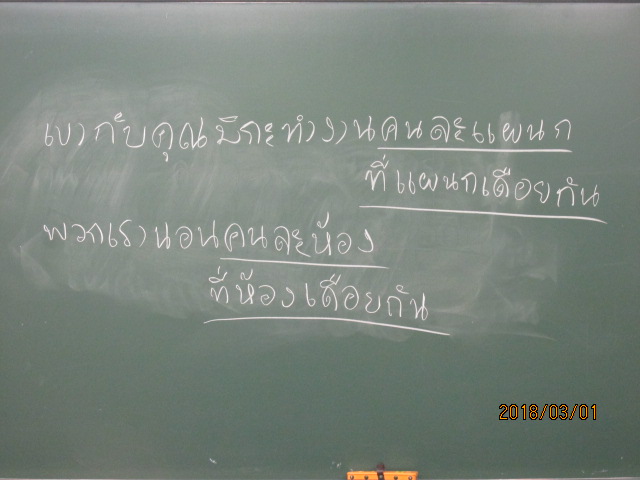 เขากับคุณมิกะทำงานคนละแผนก
ที่แผนกเดือยกัน
พวกเรานอนคนละห้อง
ที่ห้องเดือยกัน
2018/03/01